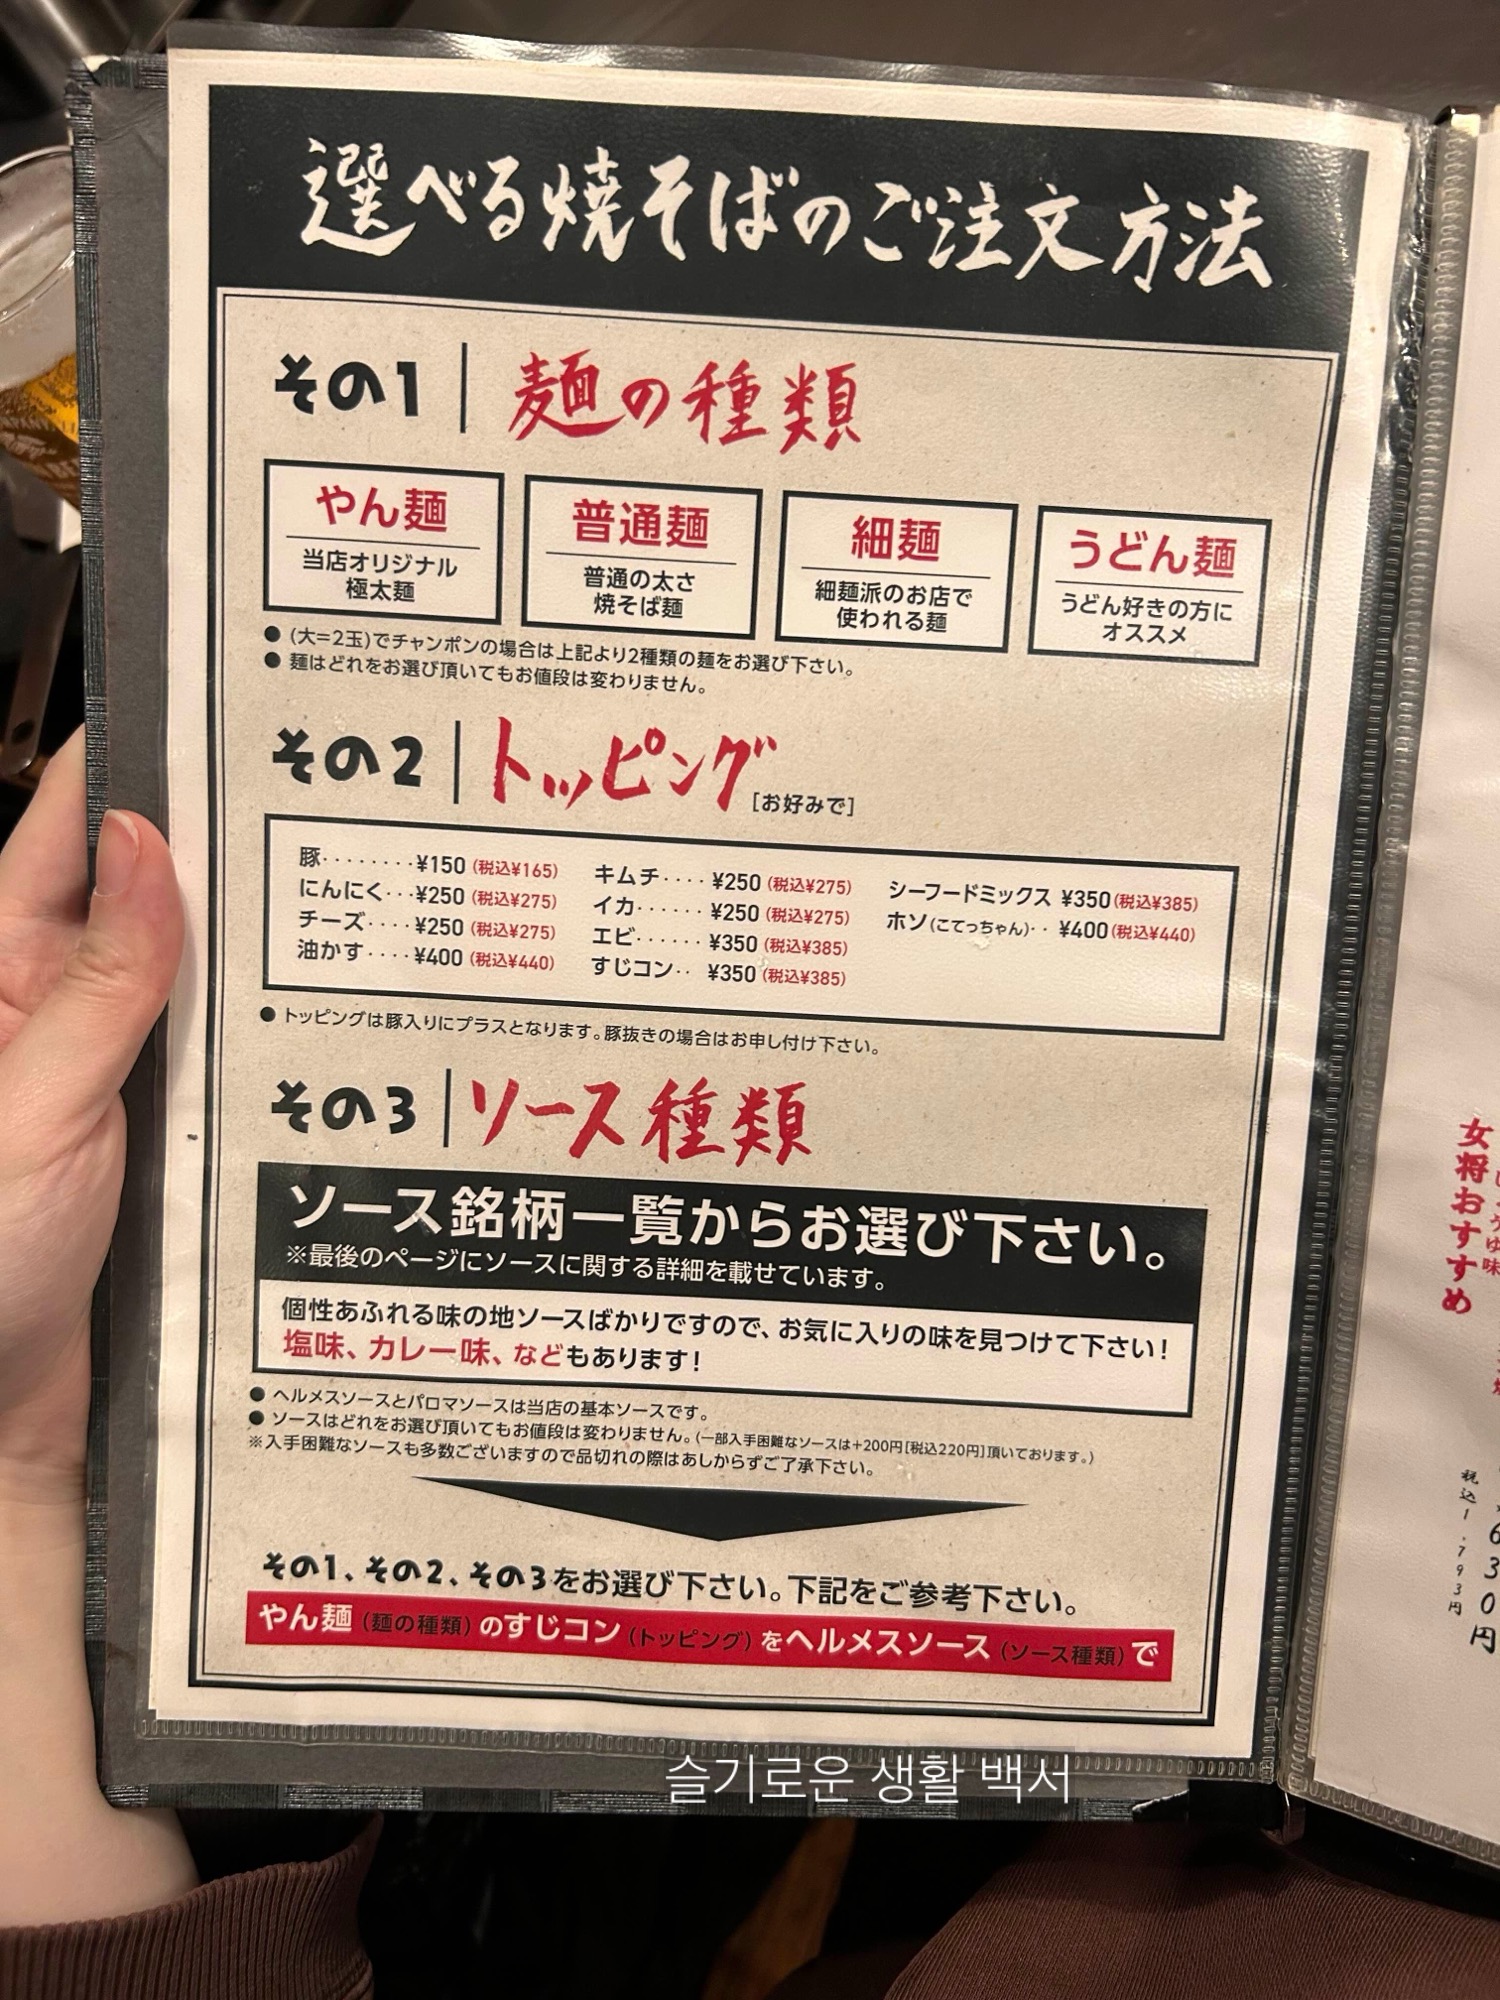 選べる焼そばのご注文方法
その1 麺の種類
やん麺
当店オリジナル
極太麺
普通麺
普通の太さ
焼そば麺
細麺
細麺派のお店で
使われる麺
うどん麺
うどん好きの方に
オススメ
● (大=2玉)でチャンポンの場合は上記より2種類の麺をお選び下さい。
● 麺はどれをお選び頂いてもお値段は変わりません。
その2 トッピング [お好みで]
豚········¥150 (税込¥165)
にんにく···¥250 (税込¥275)
チーズ····¥250 (税込¥275)
油かす····¥400 (税込¥440)
キムチ····¥250 (税込¥275)
イカ······¥250 (税込¥275)
エビ······¥350 (税込¥385)
すじコン·· ¥350 (税込¥385)
シーフードミックス ¥350 (税込¥385)
ホソ(こてっちゃん)·· ¥400 (税込¥440)
● トッピングは豚入りにプラスとなります。豚抜きの場合はお申し付け下さい。
その3 ソース種類
ソース銘柄一覧からお選び下さい。
※最後のページにソースに関する詳細を載せています。
個性あふれる味の地ソースばかりですので、お気に入りの味を見つけて下さい!
塩味、カレー味、などもあります!
● ヘルメスソースとパロマソースは当店の基本ソースです。
● ソースはどれをお選び頂いてもお値段は変わりません。(一部入手困難なソースは+200円[税込220円]頂いております。)
※入手困難なソースも多数ございますので品切れの際はあしからずご了承下さい。
その1、その2、その3をお選び下さい。下記をご参考下さい。
やん麺(麺の種類)のすじコン(トッピング)をヘルメスソース(ソース種類)で
女将おすすめ
税込1,793円
630円
슬기로운 생활 백서